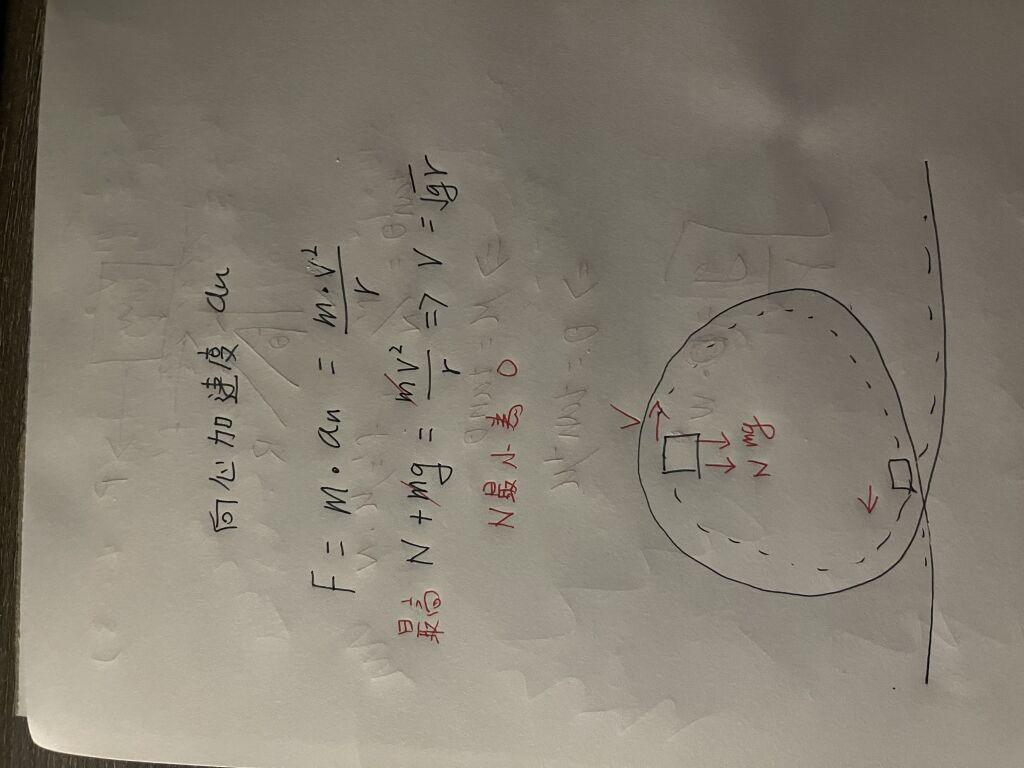 向心加速度 an
F = m·an = m·v²/r
最高 N + mg = mv²/r => v = √gr
N最小為 0
V
N mg